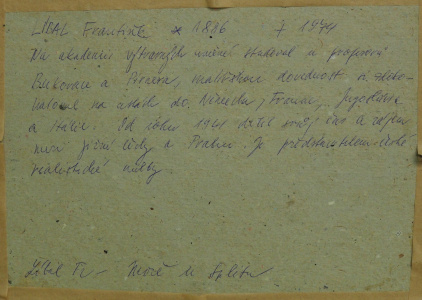 LÍBAL František * 1896 † 1974
Na akademii výtvarných umění studoval u profesorů
Bukovace a Preislera, malířskou dovednost si zdoko-
naloval na cestách do Německa, Francie, Jugoslávie
a Itálie. Od roku 1941 svůj čas a
mezi jižní Čechy a Prahu. Je představitelem české
realistické malby.
Líbal Fr - Moře u Splitu